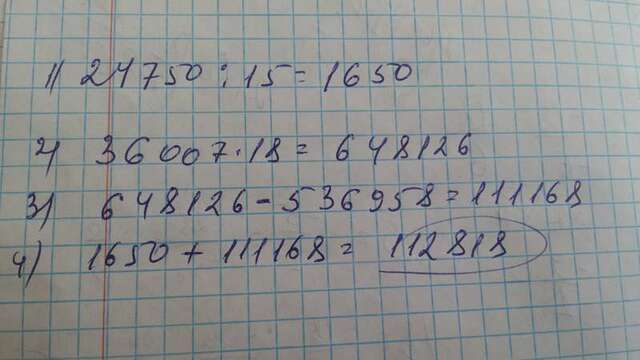 1) 24750 : 15 = 1650
2) 36007 · 18 = 648126
3) 648126 - 536958 = 111168
4) 1650 + 111168 = 112818